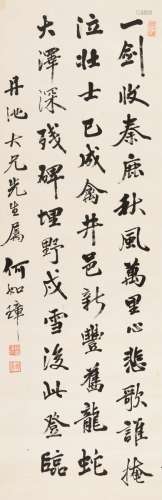 一劍收秦鹿秋風萬里心悲歌誰掩
泣壯士已成禽井邑新豐舊龍蛇
大澤深殘碑埋野戍雪後此登臨
丹池大兄先生属 何如璋